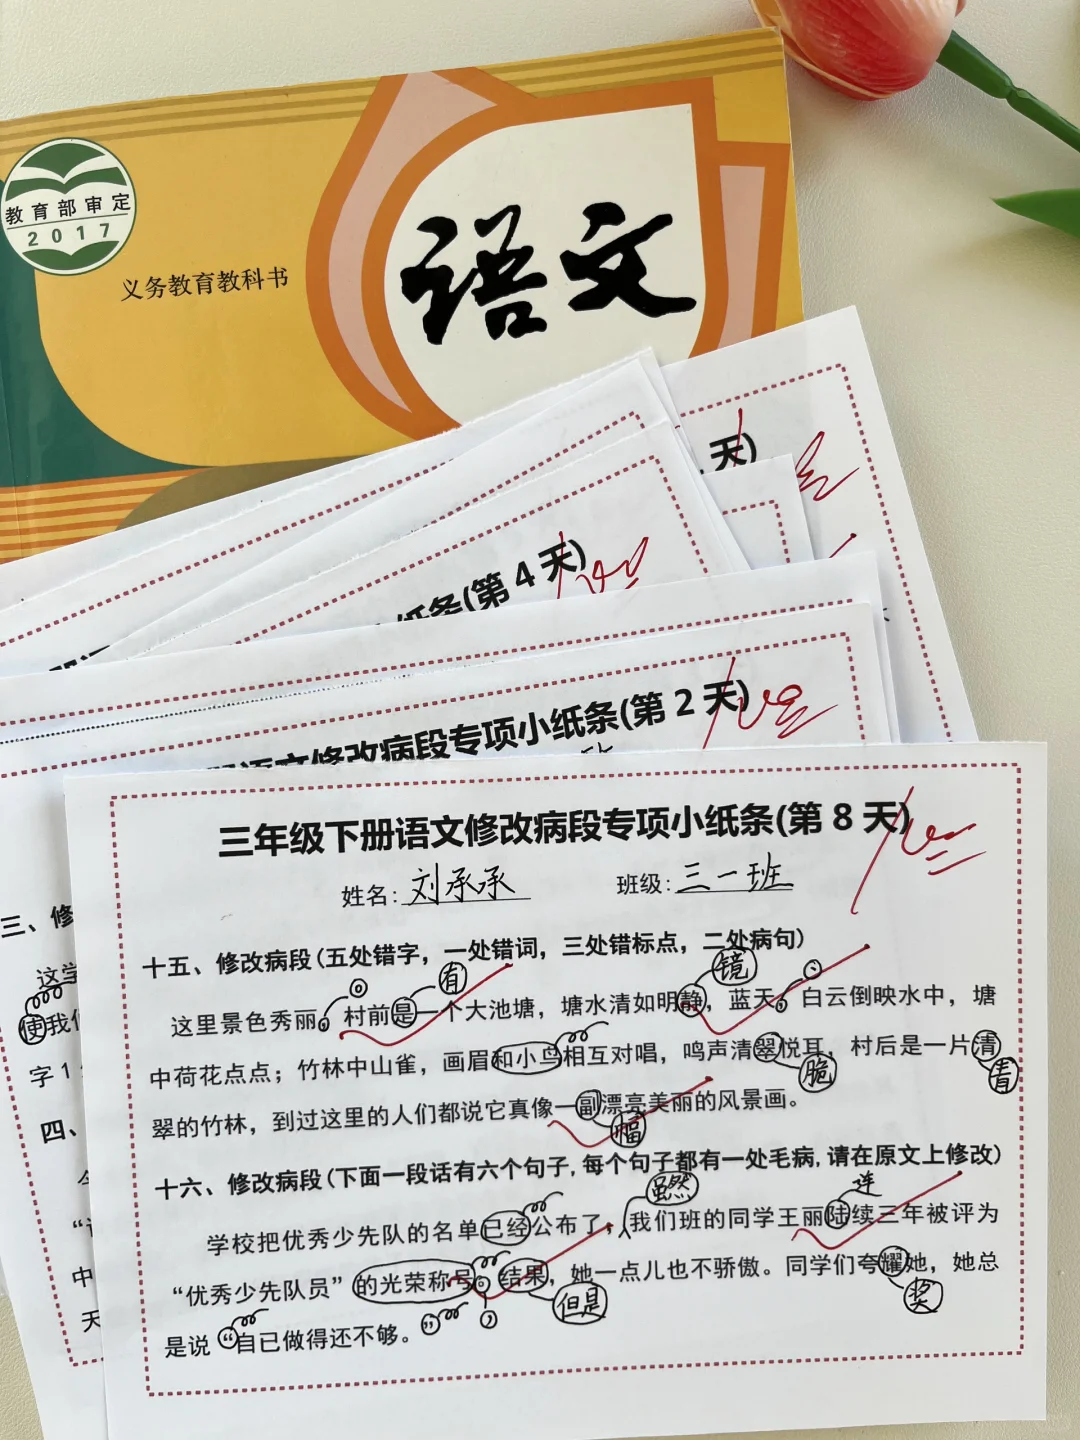 教育部审定
2017
义务教育教科书
语文
天)
纸条(第4天)
语文修改病段专项小纸条(第2天)
三年级下册语文修改病段专项小纸条(第8天)
姓名:刘承承 班级:三一班
十五、修改病段(五处错字，一处错词，三处错标点，二处病句)
有 镜 。 、
这里景色秀丽。村前是一个大池塘，塘水清如明静，蓝天。白云倒映水中，塘
中荷花点点；竹林中山雀，画眉和小鸟相互对唱，鸣声清翠悦耳，村后是一片清
脆 青
翠的竹林，到过这里的人们都说它真像一副漂亮美丽的风景画。
幅
十六、修改病段(下面一段话有六个句子,每个句子都有一处毛病,请在原文上修改)
虽然 连
学校把优秀少先队的名单已经公布了，我们班的同学王丽陆续三年被评为
“优秀少先队员”的光荣称号。结果，她一点儿也不骄傲。同学们夸耀她，她总
， 但是 奖
是说“自已做得还不够。”
三、修
这学
使我们
字1
四、
中
天